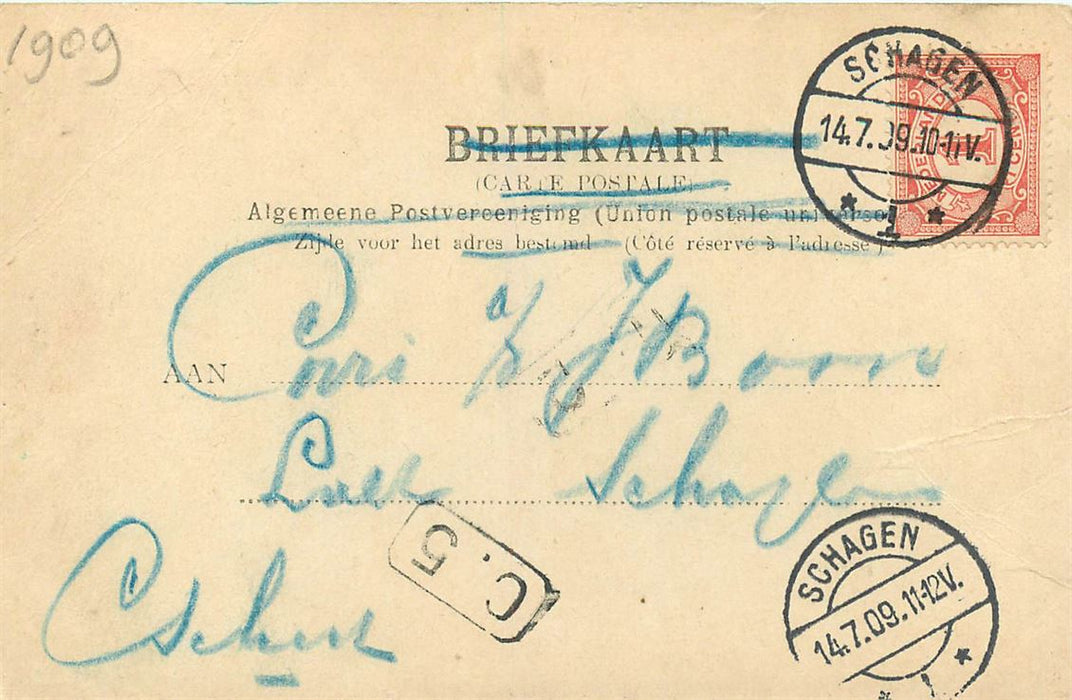 1909
SCHAGEN
14.7.09.10-11V.
1
NEDERLAND
CENT
BRIEFKAART
(CARTE POSTALE)
Algemeene Postvereeniging (Union postale universe
Zijde voor het adres bestemd (Côté réservé à l'adresse)
AAN Corri a/z J Boon
Schagen
C. 5
SCHAGEN
14.7.09.11-12V.
1